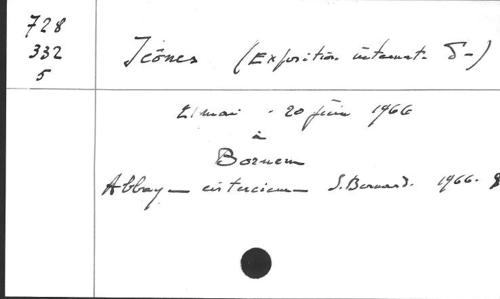 728
332
5
Icônes (Exposition internat. d-)
21 mai - 20 juin 1966
à
Bornem
Abbaye cistercienne S. Bernard. 1966.